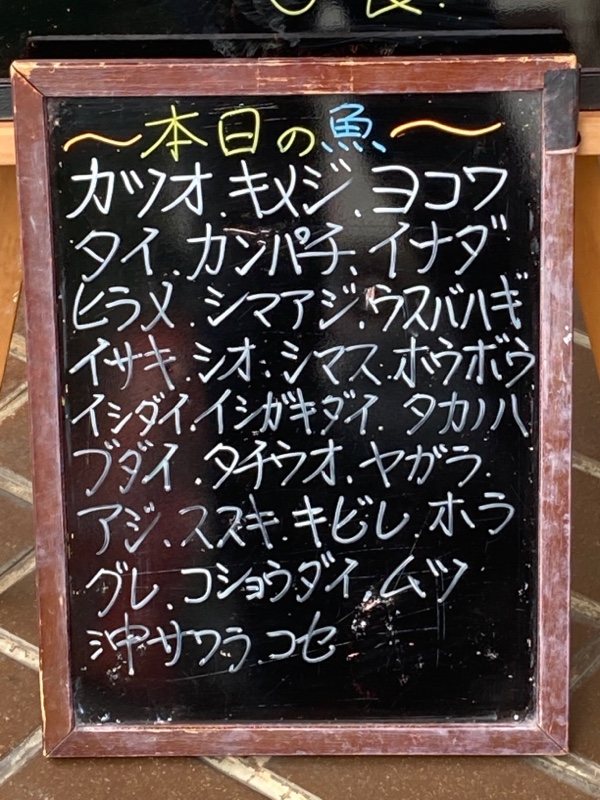 〜本日の魚〜
カツオ.キメジ.ヨコワ
タイ.カンパチ.イナダ
ヒラメ.シマアジ.ウスバハギ
イサキ.シオ.シマス.ホウボウ
イシダイ.イシガキダイ.タカノハ
ブダイ.タチウオ.ヤガラ.
アジ.スズキ.キビレ.ホラ
グレ.コショウダイ.ムツ
沖サワラ.コセ